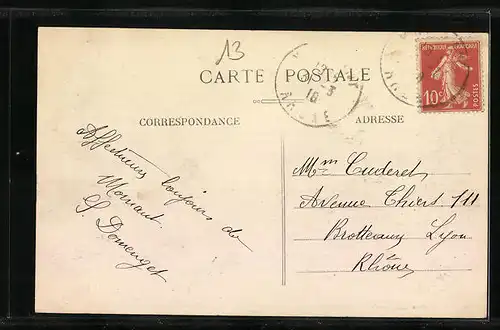 13
CARTE POSTALE
CORRESPONDANCE
ADRESSE
10c
POSTES
Affectueux toujours de
Mornant
S Domenget
Mme Cuderet
Avenue Thiers 111
Brotteaux Lyon
Rhône